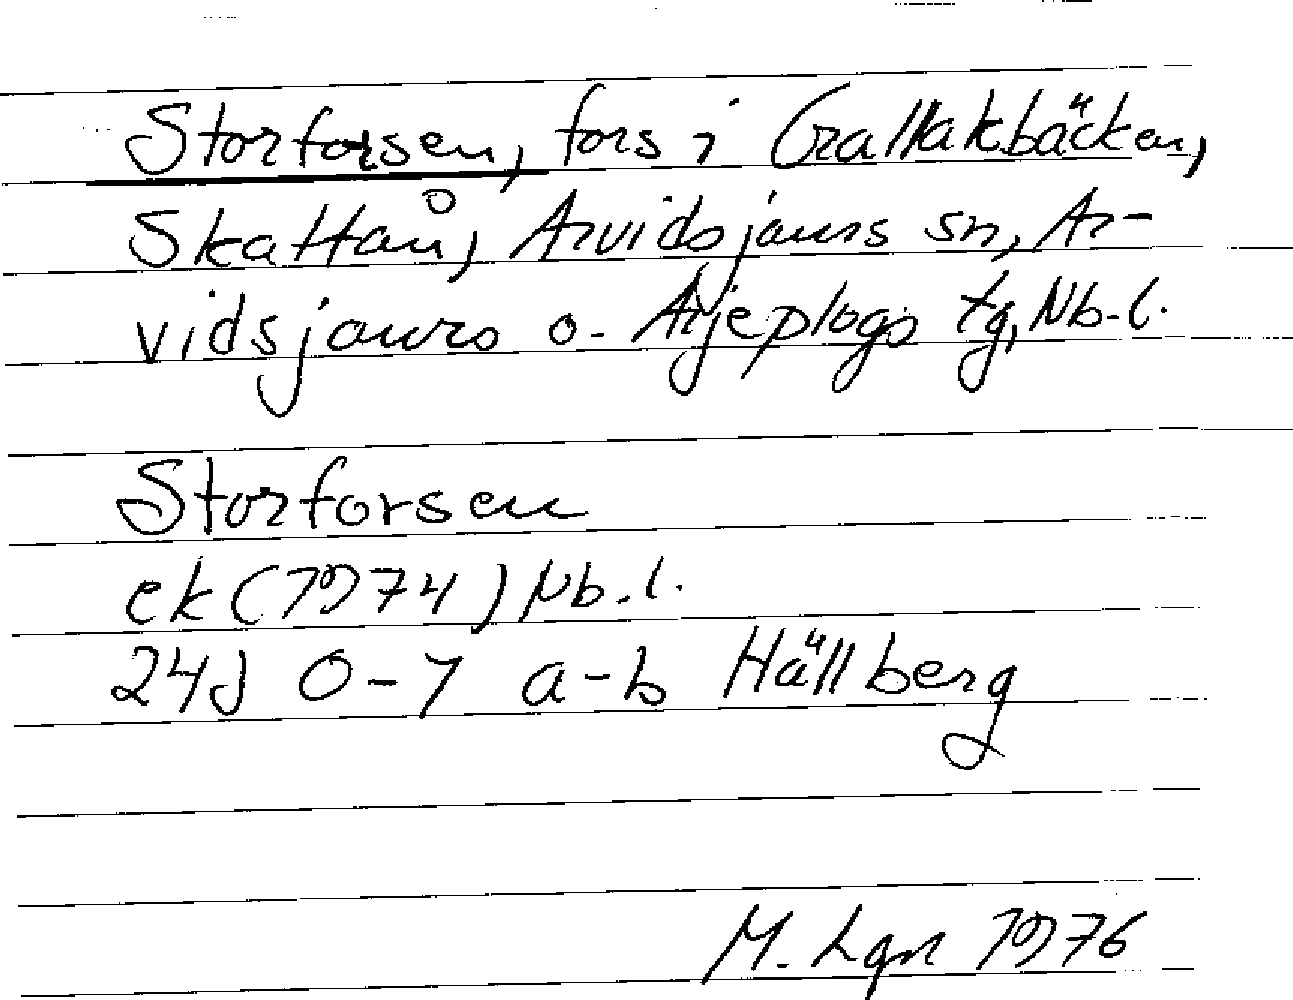 Storforsen, fors i Grallakbäcken,
Skattån, Arvidsjaurs sn, Ar-
vidsjaurs o. Arjeplogs tg, Nb.l.
Storforsen
ek (1974) Nb.l.
24J 0-1 a-b Hällberg
M. Lgn 1976